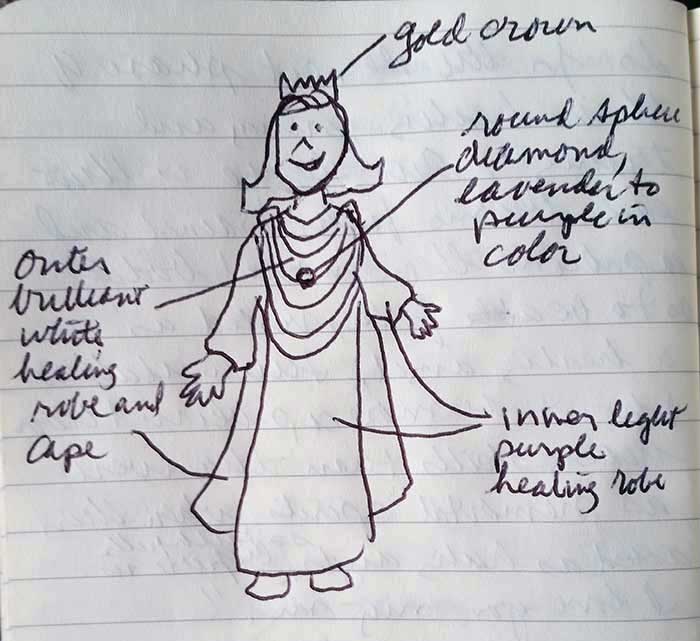 gold crown
round sphere
diamond,
lavender to
purple in
color
outer
brilliant
white
healing
robe and
cape
inner light
purple
healing robe